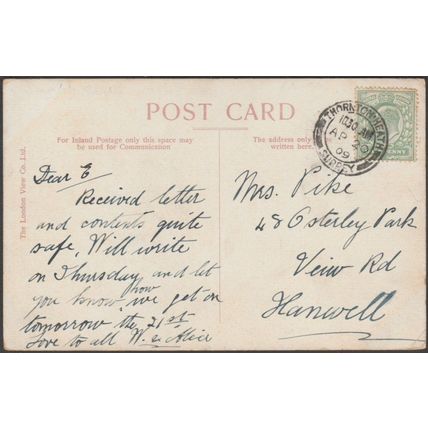 POST CARD
For Inland Postage only this space may
be used for Communication
The address only
written here.
The London View Co. Ltd.
THORNTON HEATH
10 30 AM
AP 20
09
SURREY
Dear E
Received letter
and contents quite
safe, Will write
on Thursday and let
you know how we get on
tomorrow the 21st
Love to all W. & Alice
Mrs. Pike
48 Osterley Park
Veiw Rd
Hanwell